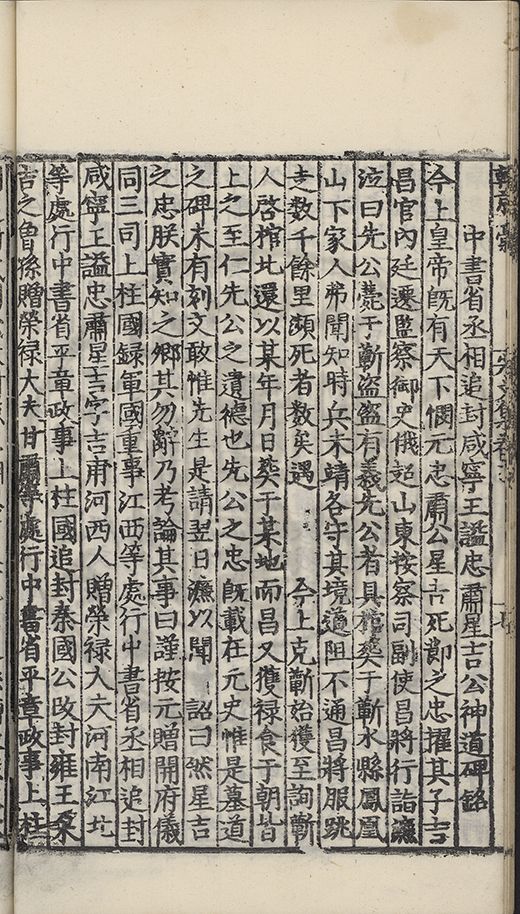 中書省丞相追封咸寧王謚忠肅星吉公神道碑銘
今上皇帝旣有天下憫元忠肅公星吉死節之忠擢其子吉
昌官內廷遷監察御史俄超山東按察司副使昌將行詣濂
泣曰先公薨于蘄盜盜有義先公者具棺葬于蘄水縣鳳凰
山下家人弗聞知時兵未靖各守其境道阻不通昌將服跳
走數千餘里瀕死者數矣遇 今上克蘄始獲至詢蘄
人啓棺北還以某年月日葬于某地而昌又獲祿食于朝皆
上之至仁先公之遺德也先公之忠旣載在元史惟是墓道
之碑未有刻文敢惟先生是請翌日濂以聞 詔曰然星吉
之忠朕實知之卿其勿辭乃考論其事曰謹按元贈開府儀
同三司上柱國録軍國重事江西等處行中書省丞相追封
咸寧王謚忠肅星吉字吉甫河西人贈榮禄大夫河南江北
等處行中書省平章政事上柱國追封秦國公改封雍王朶
吉之曾孫贈榮禄大夫甘肅等處行中書省平章政事上柱